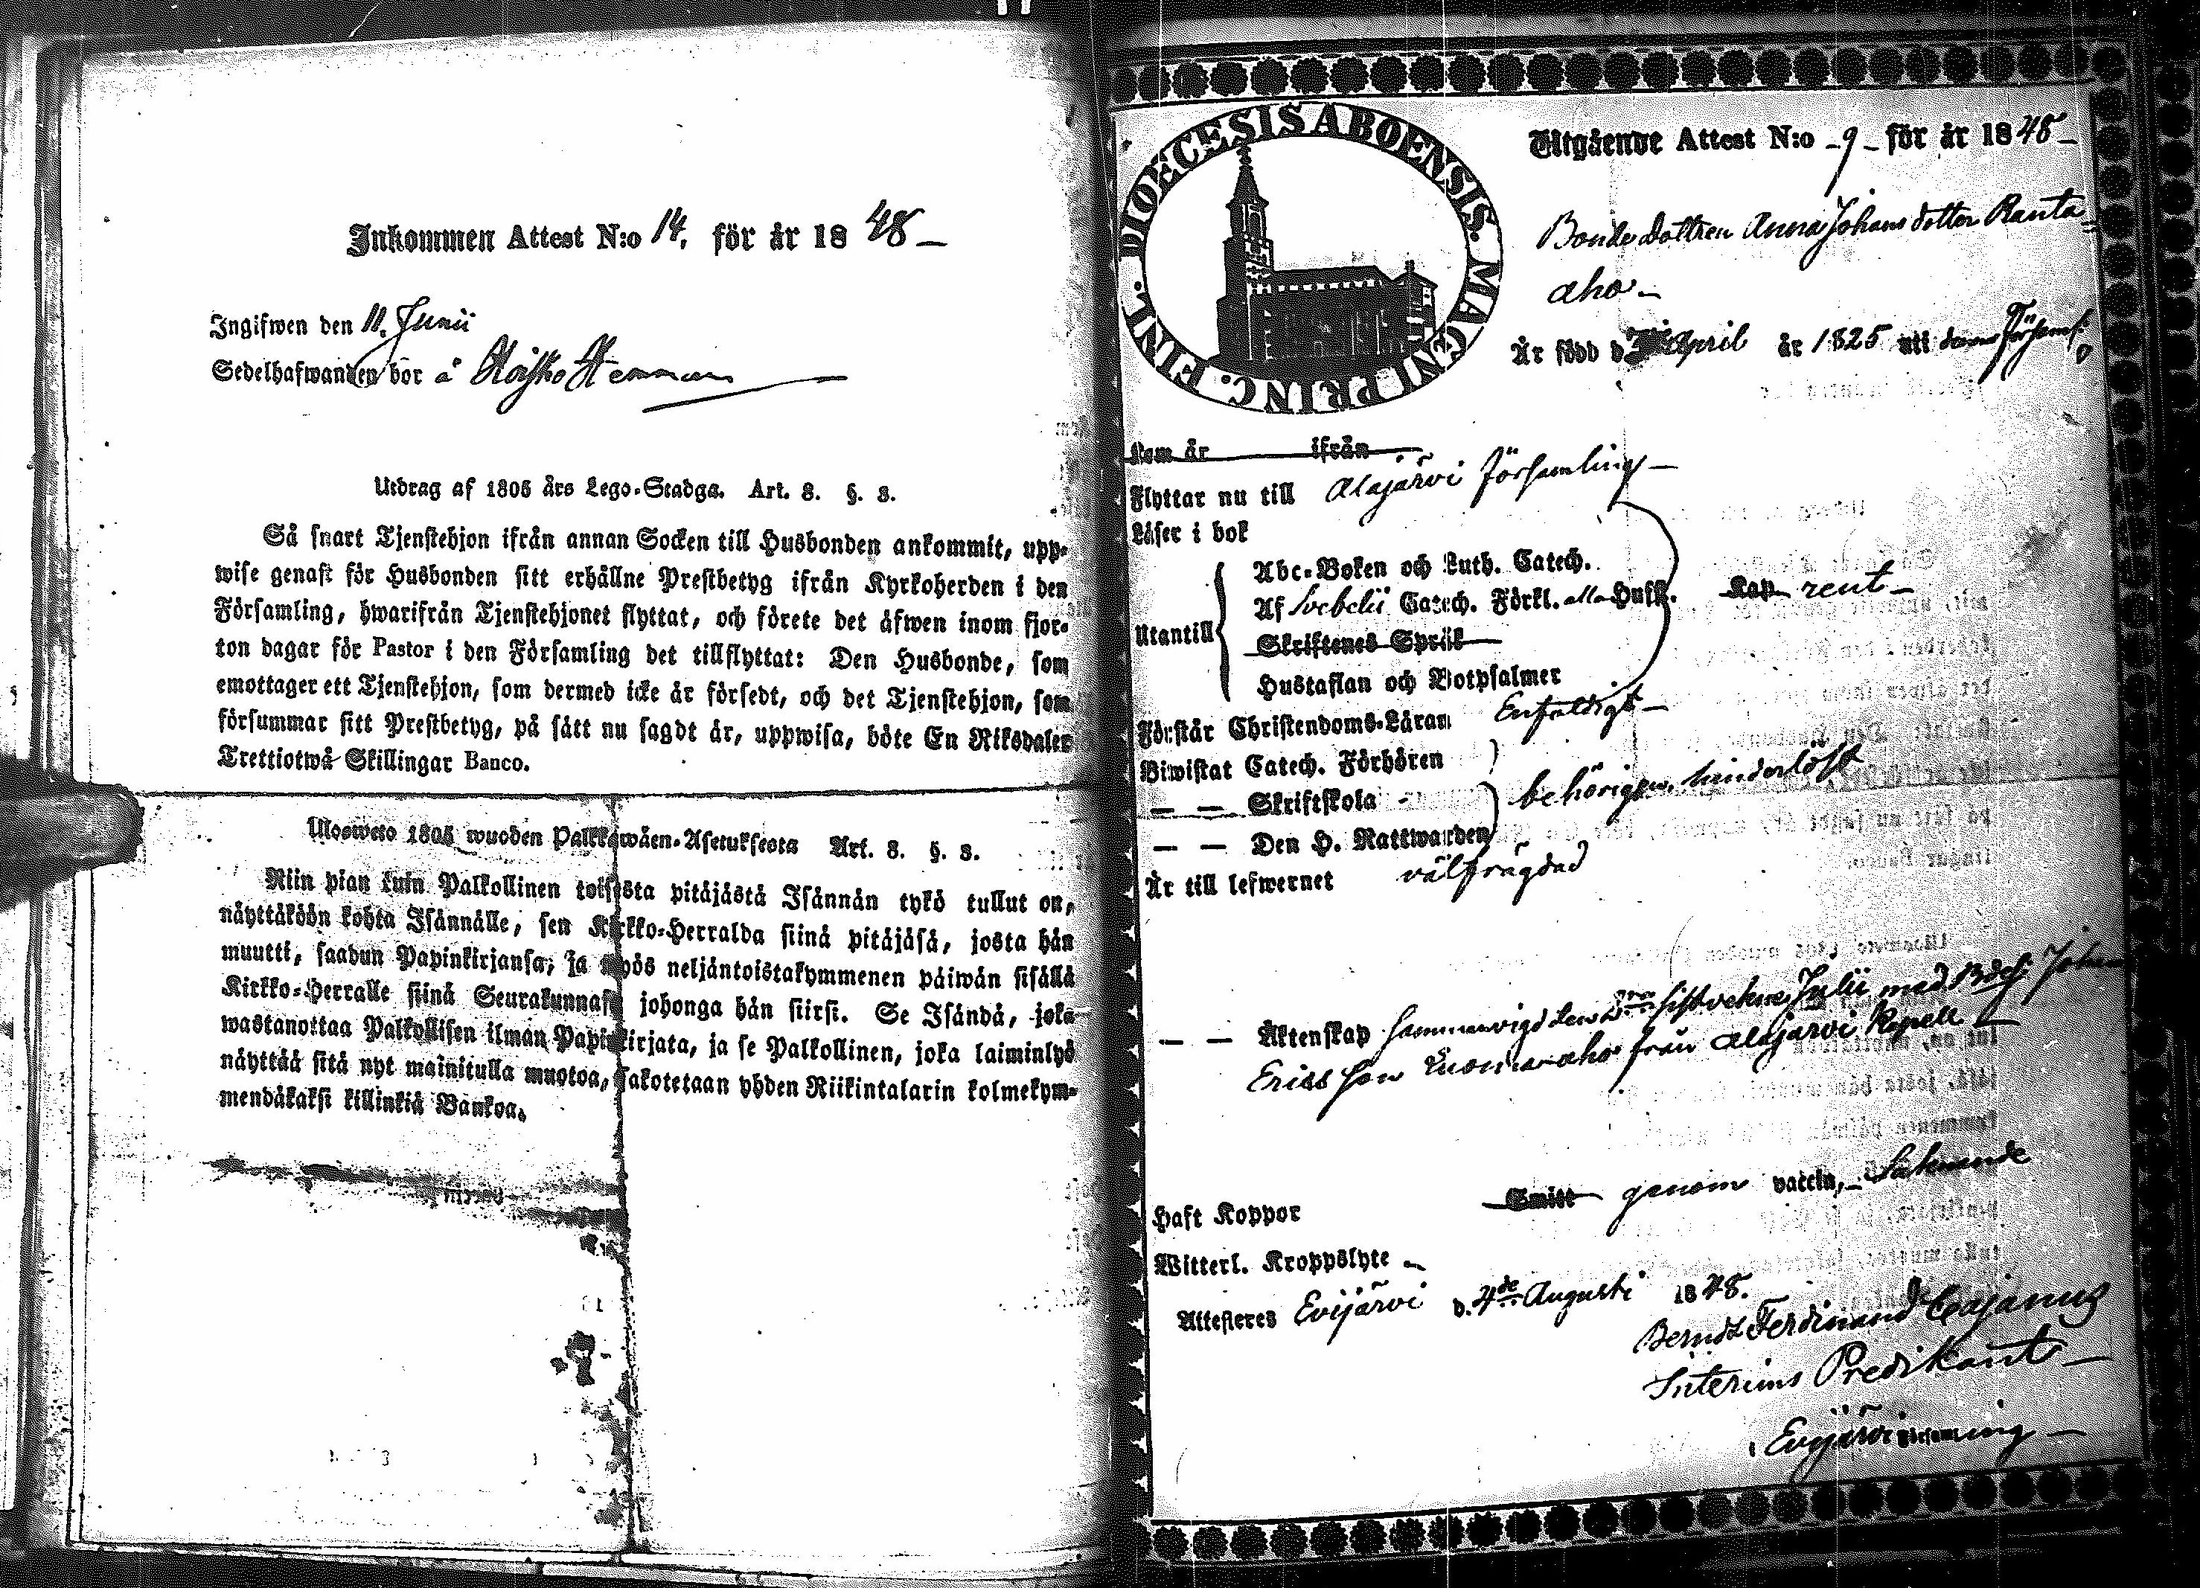 Inkommen Attest N:o 14. för år 1848 –
Ingifwen den 11. Junii
Sedelhafwanden bor å Koisko Hemman
Utdrag af 1805 års Lego-Stadga. Art. 8. §. 3.
Så snart Tjenstehjon ifrån annan Socken till Husbonden ankommit, upp-
wise genast för Husbonden sitt erhållne Prestbetyg ifrån Kyrkoherden i den
Församling, hwarifrån Tjenstehjonet flyttat, och förete det äfwen inom fjor-
ton dagar för Pastor i den Församling det tillflyttat: Den Husbonde, som
emottager ett Tjenstehjon, som dermed icke är försedt, och det Tjenstehjon, som
försummar sitt Prestbetyg, på sätt nu sagdt är, uppwisa, böte En Riksdaler
Trettiotwå Skillingar Banco.
Ulosweto 1805 wuoden Palkkawäen-Asetuksesta Art. 8. §. 3.
Niin pian kuin Palkollinen toisesta pitäjästä Isännän tykö tullut on,
näyttäköön kohta Isännälle, sen Kirkko-Herralda siinä pitäjäsä, josta hän
muutti, saadun Papinkirjansa, ja myös neljäntoistakymmenen päiwän sisällä
Kirkko-Herralle siinä Seurakunnasa johonga hän siirsi. Se Isändä, joka
wastanottaa Palkollisen ilman Papinkirjata, ja se Palkollinen, joka laiminlyö
näyttää sitä nyt mainitulla muotoa, sakotetaan yhden Riikintalarin kolmekym-
mendäkaksi killinkiä Bankoa.
DIOECESIS ABOENSIS. MAGNI PRINC. FINL.
Utgående Attest N:o 9 för år 1848 –
Bonde Dottren Anna Johans dotter Ranta-
aho –
Är född d. April år 1825 uti denna Församl:
Kom år ifrån
Flyttar nu till Alajärvi församling –
Läser i bok
Abc-Boken och Luth. Catech.
Af Svebelii Catech. Förkl. alla Hufst. Kap. rent –
Utantill
Skriftenes Språk
Hustaflan och Botpsalmer
Förstår Christendoms-Läran Enfaldigt –
Biwistat Catech. Förhören
— — Skriftskola behörigen, hinderlöst
— — Den H. Nattwarden
Är till lefwernet välfrägdad
— — Äktenskap sammanvigd den 2dra sistvekne Julii med Bdes: Johan
Ericsson Tuomaraho från Alajärvi Kapell –
Haft Koppor Smitt genom vaccin, – Saknande
Witterl. Kroppslyte –
Attesteres Evijärvi d. 4de Augusti 1848.
Berndt Ferdinand Cajanus
Interims Predikant –
i Evijärvi församling –